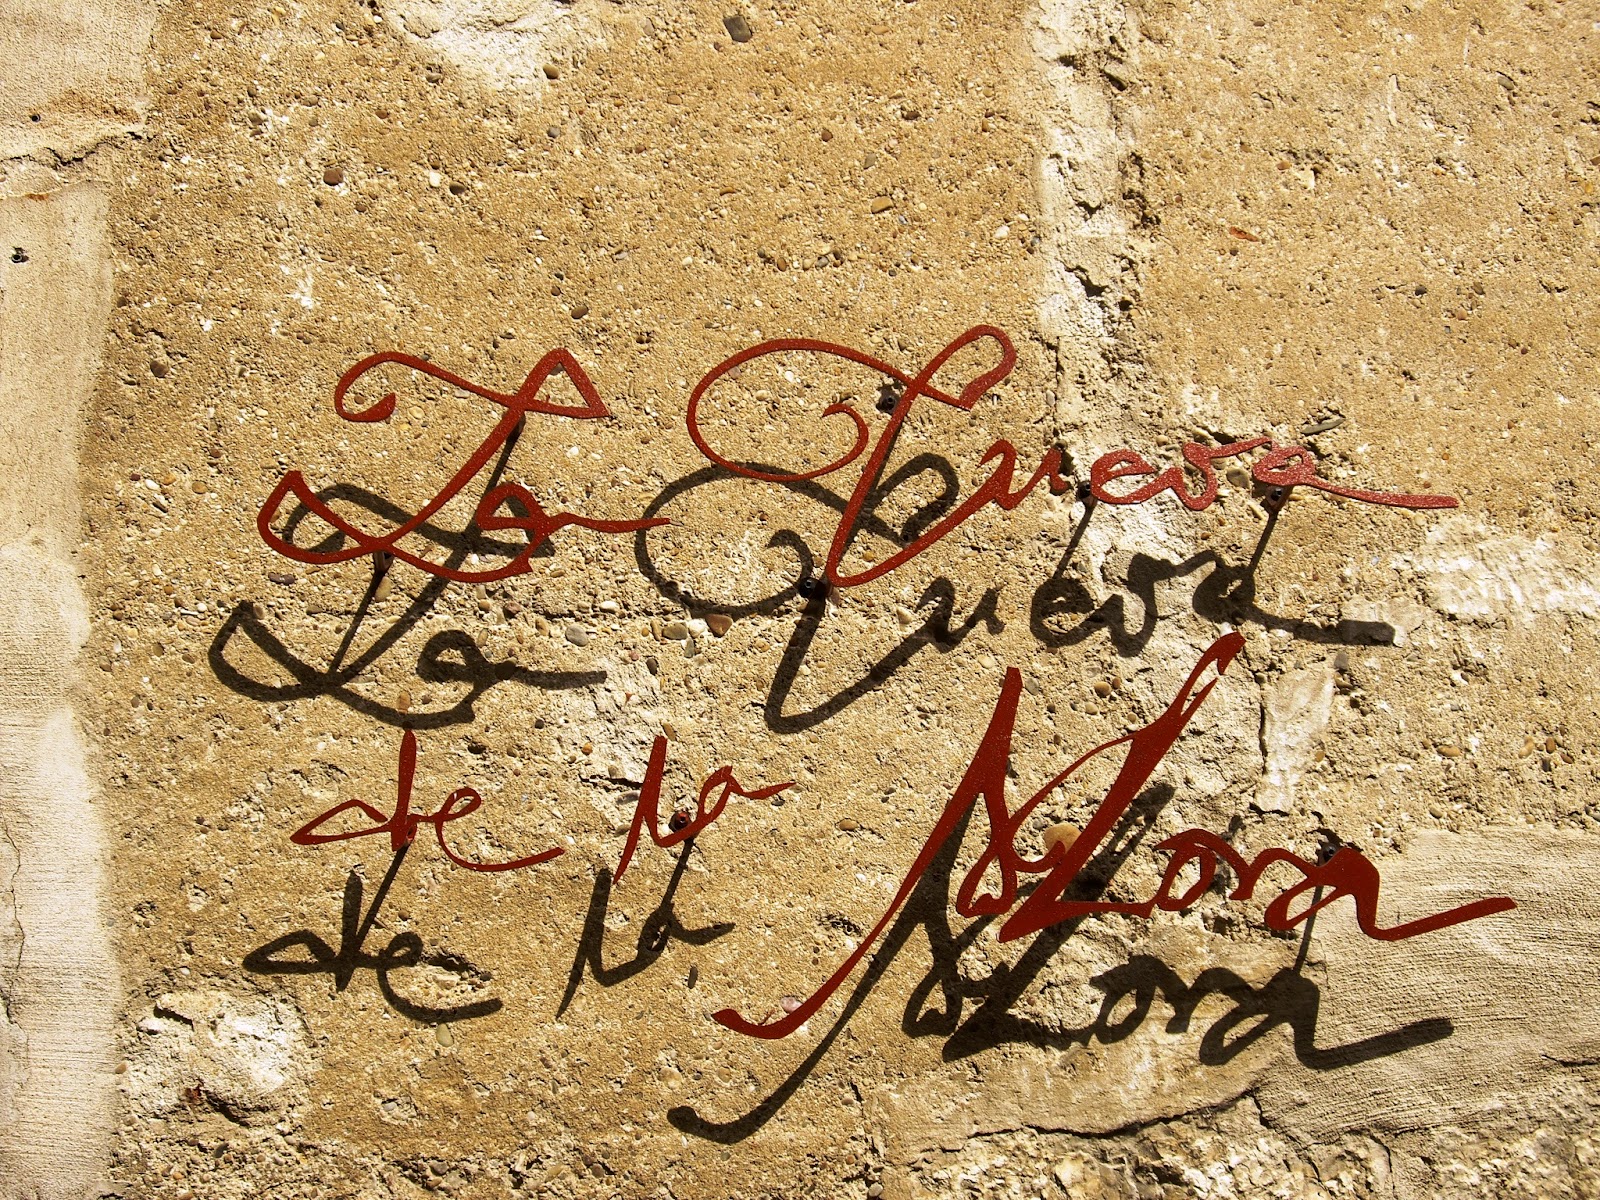 La Cueva
de la Mora